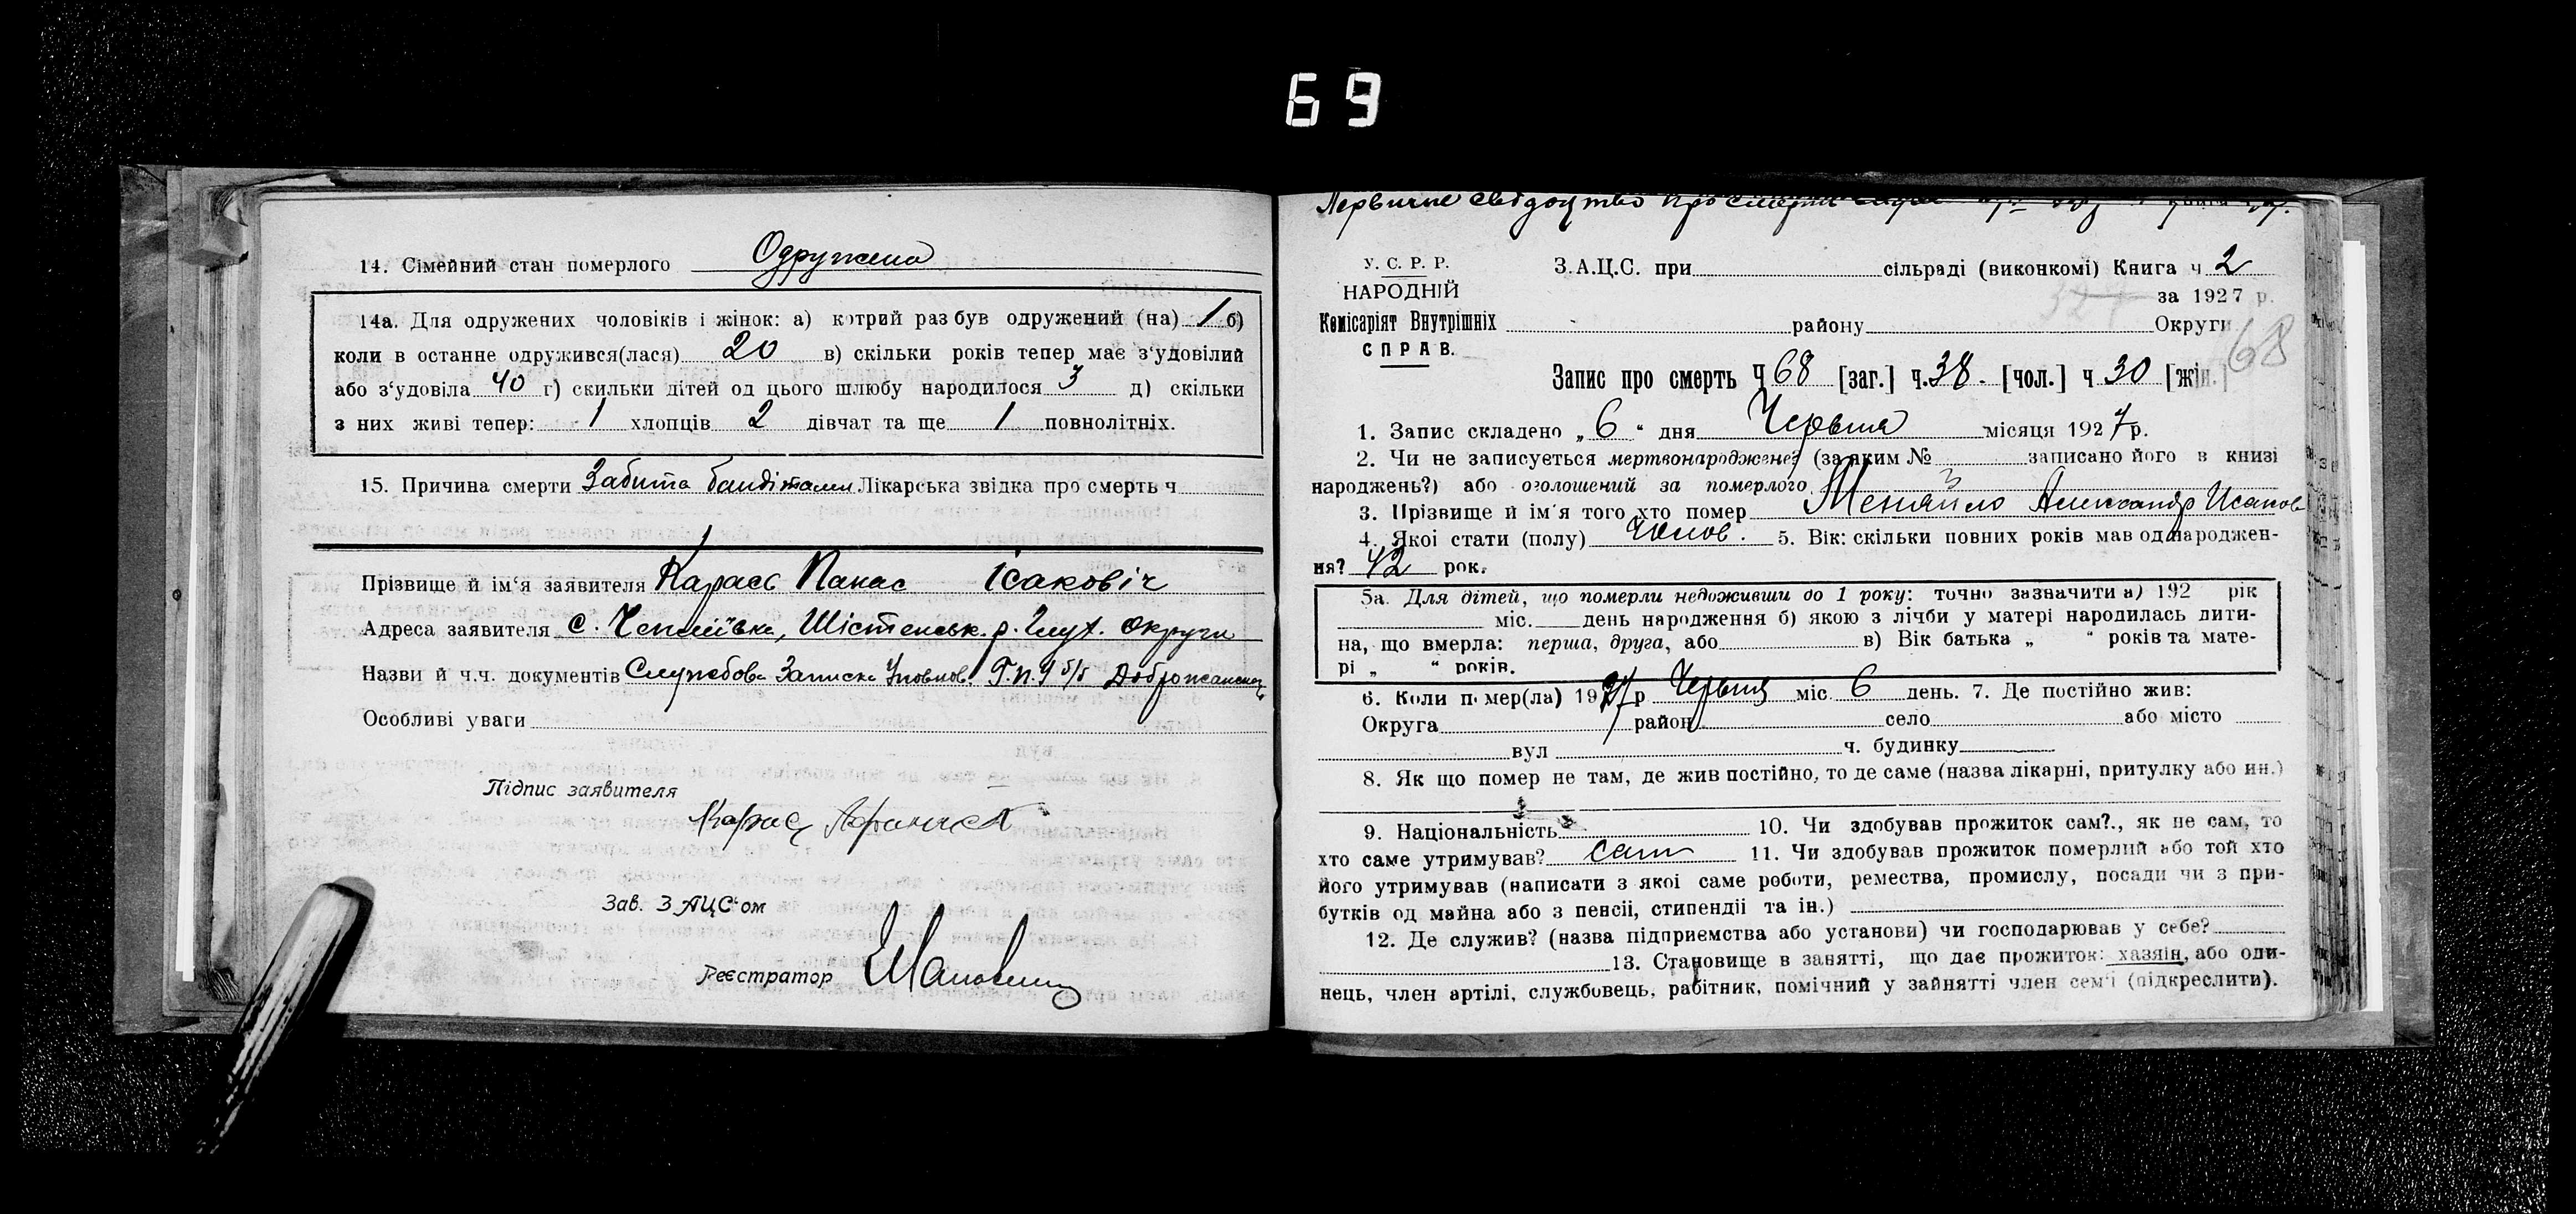 69
14. Сімейний стан померлого Одружена
14а. Для одружених чоловіків і жінок: а) котрий раз був одружений (на) 1 б)
коли в останне одружився(лася) 20 в) скільки років тепер має з'удовілий
або з'удовіла 40 г) скильки дітей од цього шлюбу народилося 3 д) скільки
з них живі тепер: 1 хлопців 2 дівчат та ще 1 повнолітніх.
15. Причина смерти Забита бандітами Лікарська звідка про смерть ч
Прізвище й ім'я заявителя Карась Панас Ісаковіч
Адреса заявителя с. Чепліївка, Шістенськ. р. Глух. округи
Назви й ч.ч. документів Службова Записка Уповнов. Г.П.У
Особливі уваги
Підпис заявителя
Карась
Зав. ЗАЦС'ом
Реєстратор
Первичне свідоцтво про смерть
У. С. Р. Р.
НАРОДНІЙ
Комісаріят Внутрішніх
СПРАВ.
З.А.Ц.С. при сільраді (виконкомі) Книга ч 2
за 1927 р.
району Округи
68
Запис про смерть Ч 68 [заг.] ч. 38. [чол.] ч 30 [жін.]
1. Запис складено „ 6 " дня Червня місяця 1927 р.
2. Чи не записуеться мертвонароджене? (за яким № записано його в книзі
народжень?) або оголошений за померлого
3. Прізвище й ім'я того хто помер Меняйло Александр Исаков
4. Якоі стати (полу) Чолов. 5. Вік: скільки повних років мав од народжен-
ня? 42 рок.
5а. Для дітей, що померли недоживши до 1 року: точно зазначити а) 192 рік
міс. день народження б) якою з лічби у матері народилась дити-
на, що вмерла: перша, друга, або в) Вік батька „ " років та мате-
рі „ " років.
6. Коли помер(ла) 1927 р Червня міс. 6 день. 7. Де постійно жив:
Округа район село або місто
вул ч. будинку
8. Як що помер не там, де жив постійно, то де саме (назва лікарні, притулку або ин.)
9. Національність 10. Чи здобував прожиток сам?., як не сам, то
хто саме утримував? сам 11. Чи здобував прожиток померлий або той хто
його утримував (написати з якоі саме роботи, ремества, промислу, посади чи з при-
бутків од майна або з пенсіі, стипендіі та ін.)
12. Де служив? (назва підприемства або установи) чи господарював у себе?
13. Становище в занятті, що дає прожиток: хазяін, або оди-
нець, член артілі, службовець, рабітник, помічний у зайнятті член сем'і (підкреслити).